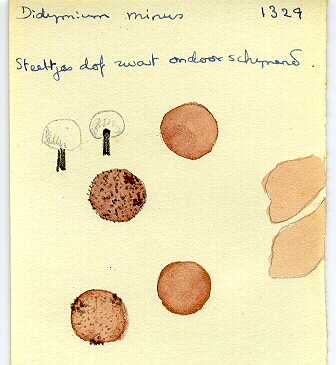 Didymium minus 1329
Steeltjes dof zwart ondoorschijnend.